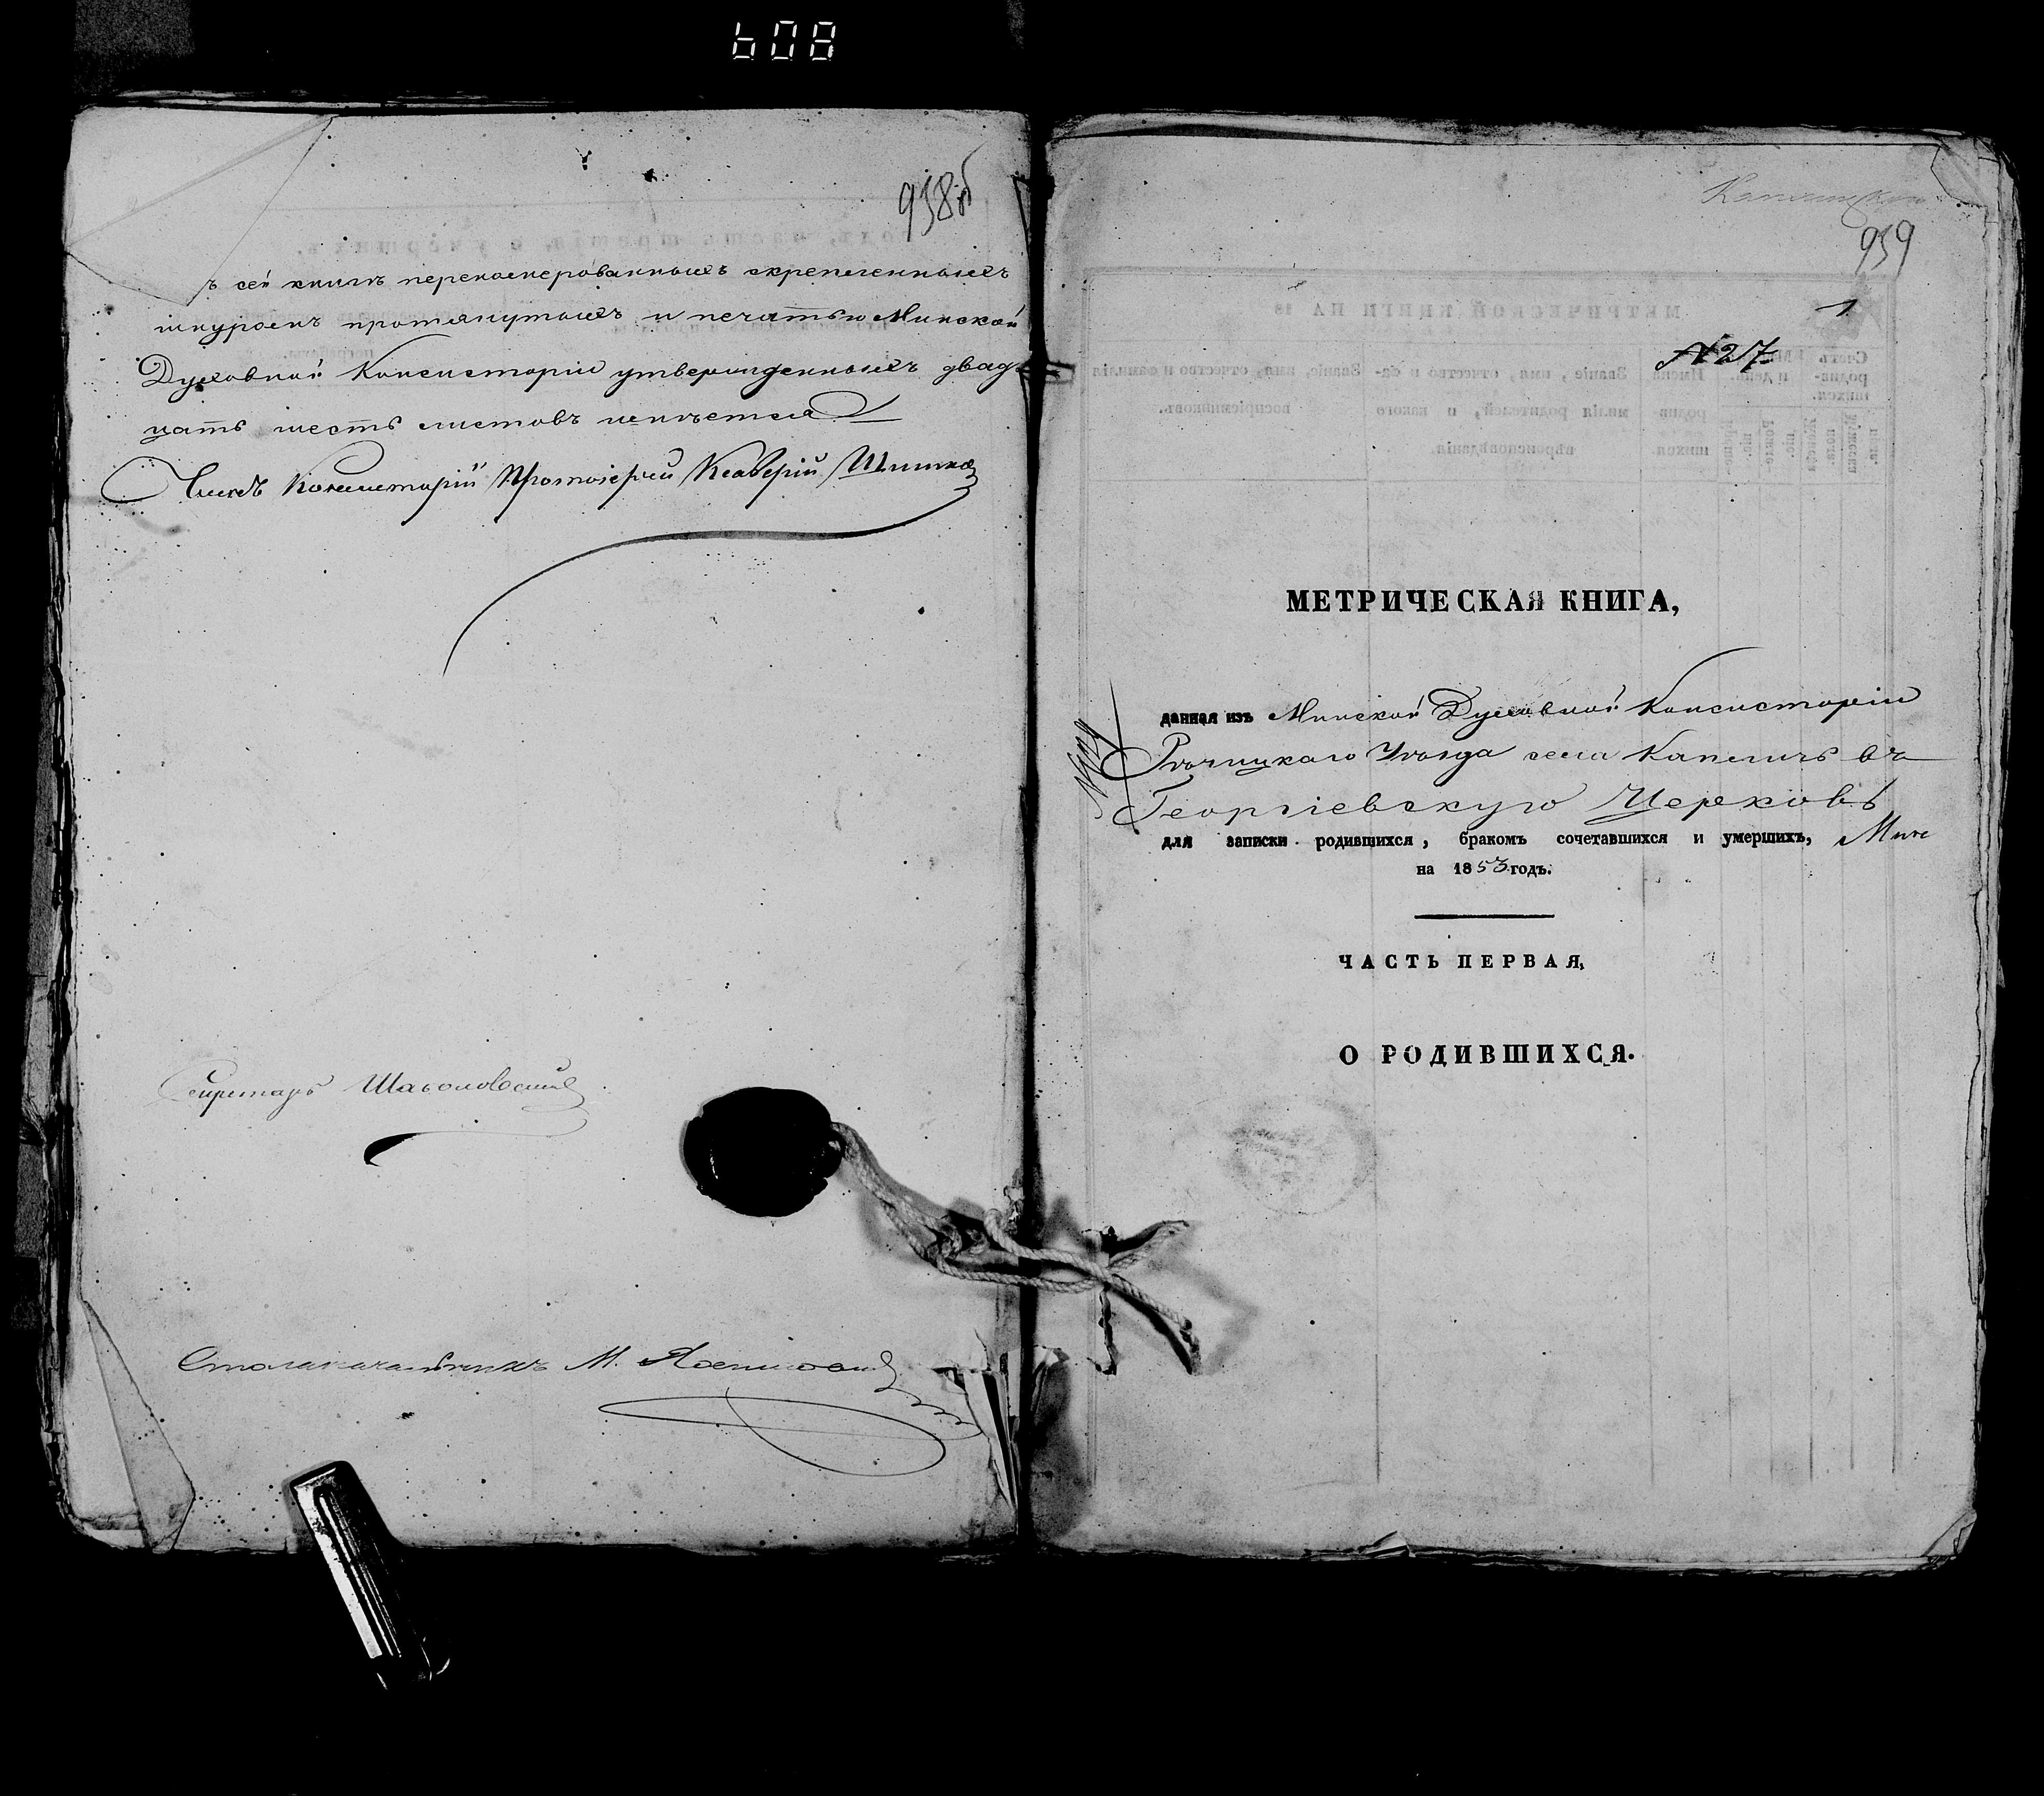 608
938 об
ъ сей книгѣ переномерованныхъ скрепленныхъ
шнуромъ протянутыхъ и печатью Минской
Духовной Консисторіи утвержденныхъ двад
цать шесть листовъ имѣется
Членъ Консисторіи Протоіерей Ксаверій
Секретарь
Столоначальникъ М.
939
1
№ 27
МЕТРИЧЕСКАЯ КНИГА,
данная изъ Минской Духовной Консисторіи
Рѣчицкаго Уѣзда села Капличь въ
Георгіевскую Церковь
для записки родившихся, бракомъ сочетавшихся и умершихъ,
на 1853 годъ.
ЧАСТЬ ПЕРВАЯ,
О РОДИВШИХСЯ.